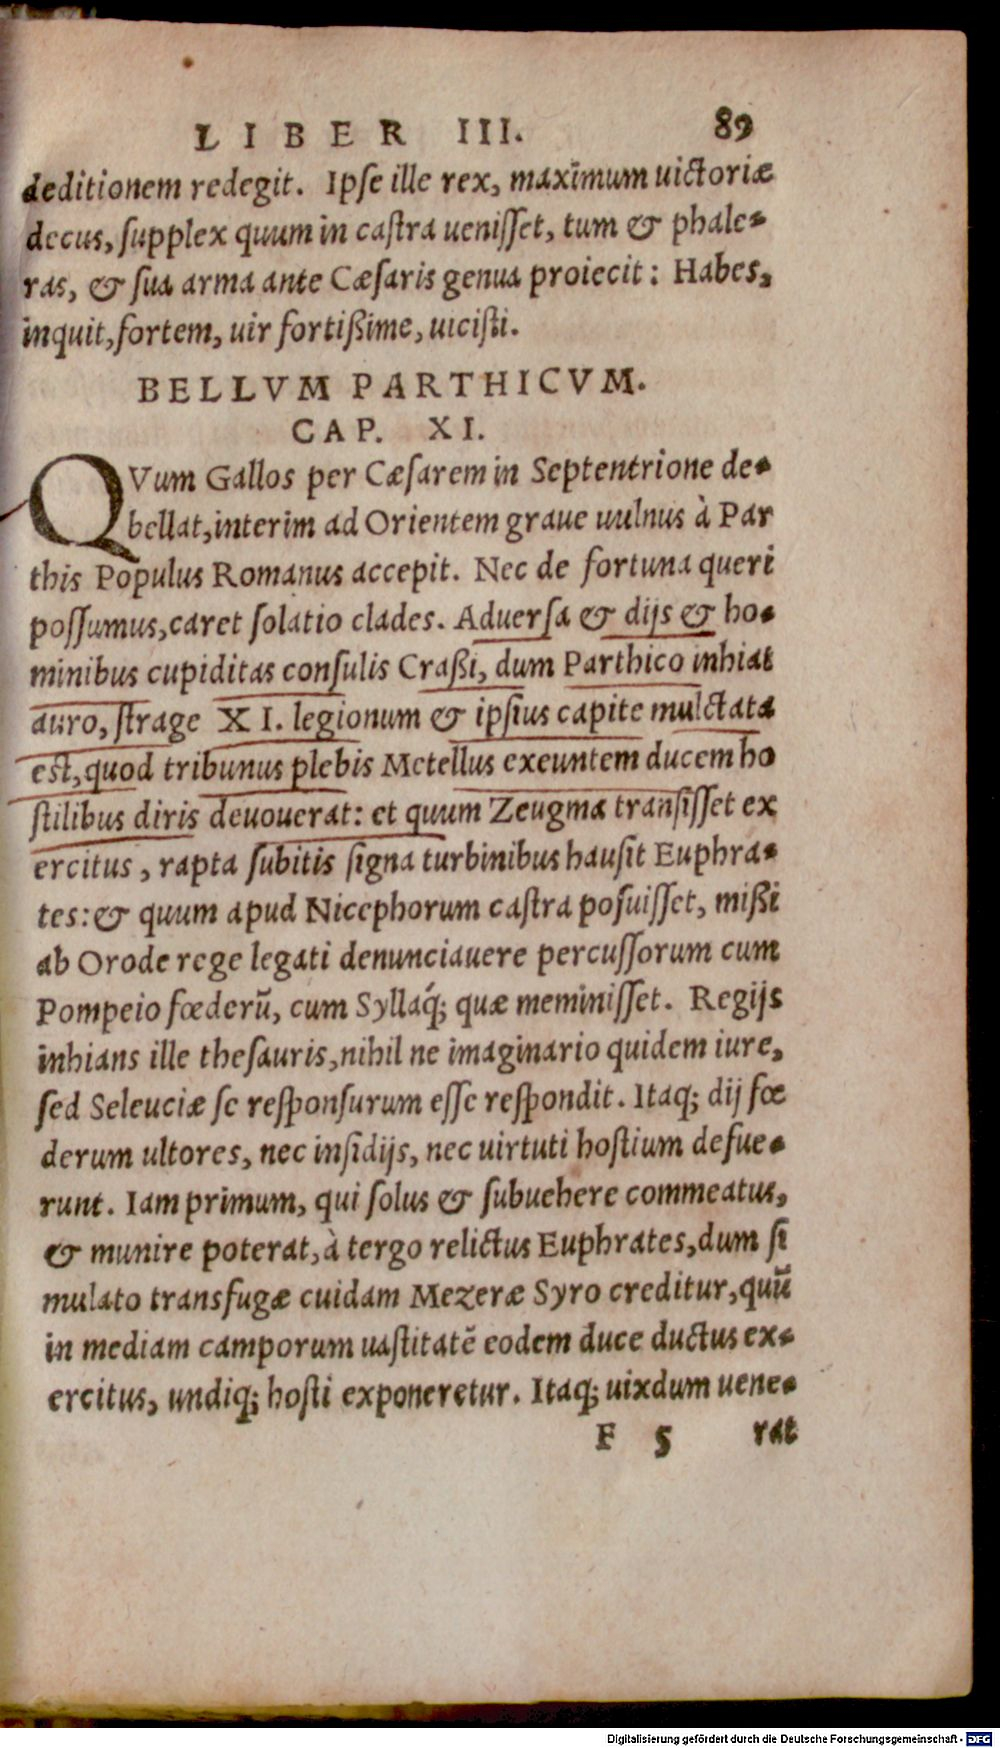 LIBER III. 89
deditionem redegit. Ipſe ille rex, maximum uictoriæ
decus, ſupplex quum in caſtra ueniſſet, tum & phale-
ras, & ſua arma ante Cæſaris genua proiecit: Habes,
inquit, fortem, uir fortißime, uiciſti.
BELLVM PARTHICVM.
CAP. XI.
QVum Gallos per Cæſarem in Septentrione de-
bellat, interim ad Orientem graue uulnus à Par
this Populus Romanus accepit. Nec de fortuna queri
poſſumus, caret ſolatio clades. Aduerſa & dijs & ho-
minibus cupiditas conſulis Craßi, dum Parthico inhiat
auro, ſtrage XI. legionum & ipſius capite mulctata
eſt, quod tribunus plebis Metellus exeuntem ducem ho
ſtilibus diris deuouerat: et quum Zeugma tranſiſſet ex
ercitus, rapta ſubitis ſigna turbinibus hauſit Euphra-
tes: & quum apud Nicephorum caſtra poſuiſſet, mißi
ab Orode rege legati denunciauere percuſſorum cum
Pompeio fœderũ, cum Syllaq́; quæ meminiſſet. Regijs
inhians ille theſauris, nihil ne imaginario quidem iure,
ſed Seleuciæ ſe reſponſurum eſſe reſpondit. Itaq; dij fœ
derum ultores, nec inſidijs, nec uirtuti hoſtium defue-
runt. Iam primum, qui ſolus & ſubuehere commeatus,
& munire poterat, à tergo relictus Euphrates, dum ſi
mulato transfugæ cuidam Mezeræ Syro creditur, quũ
in mediam camporum uaſtitatẽ eodem duce ductus ex-
ercitus, undiq; hoſti exponeretur. Itaq; uixdum uene-
F 5 rat
Digitalisierung gefördert durch die Deutsche Forschungsgemeinschaft - DFG